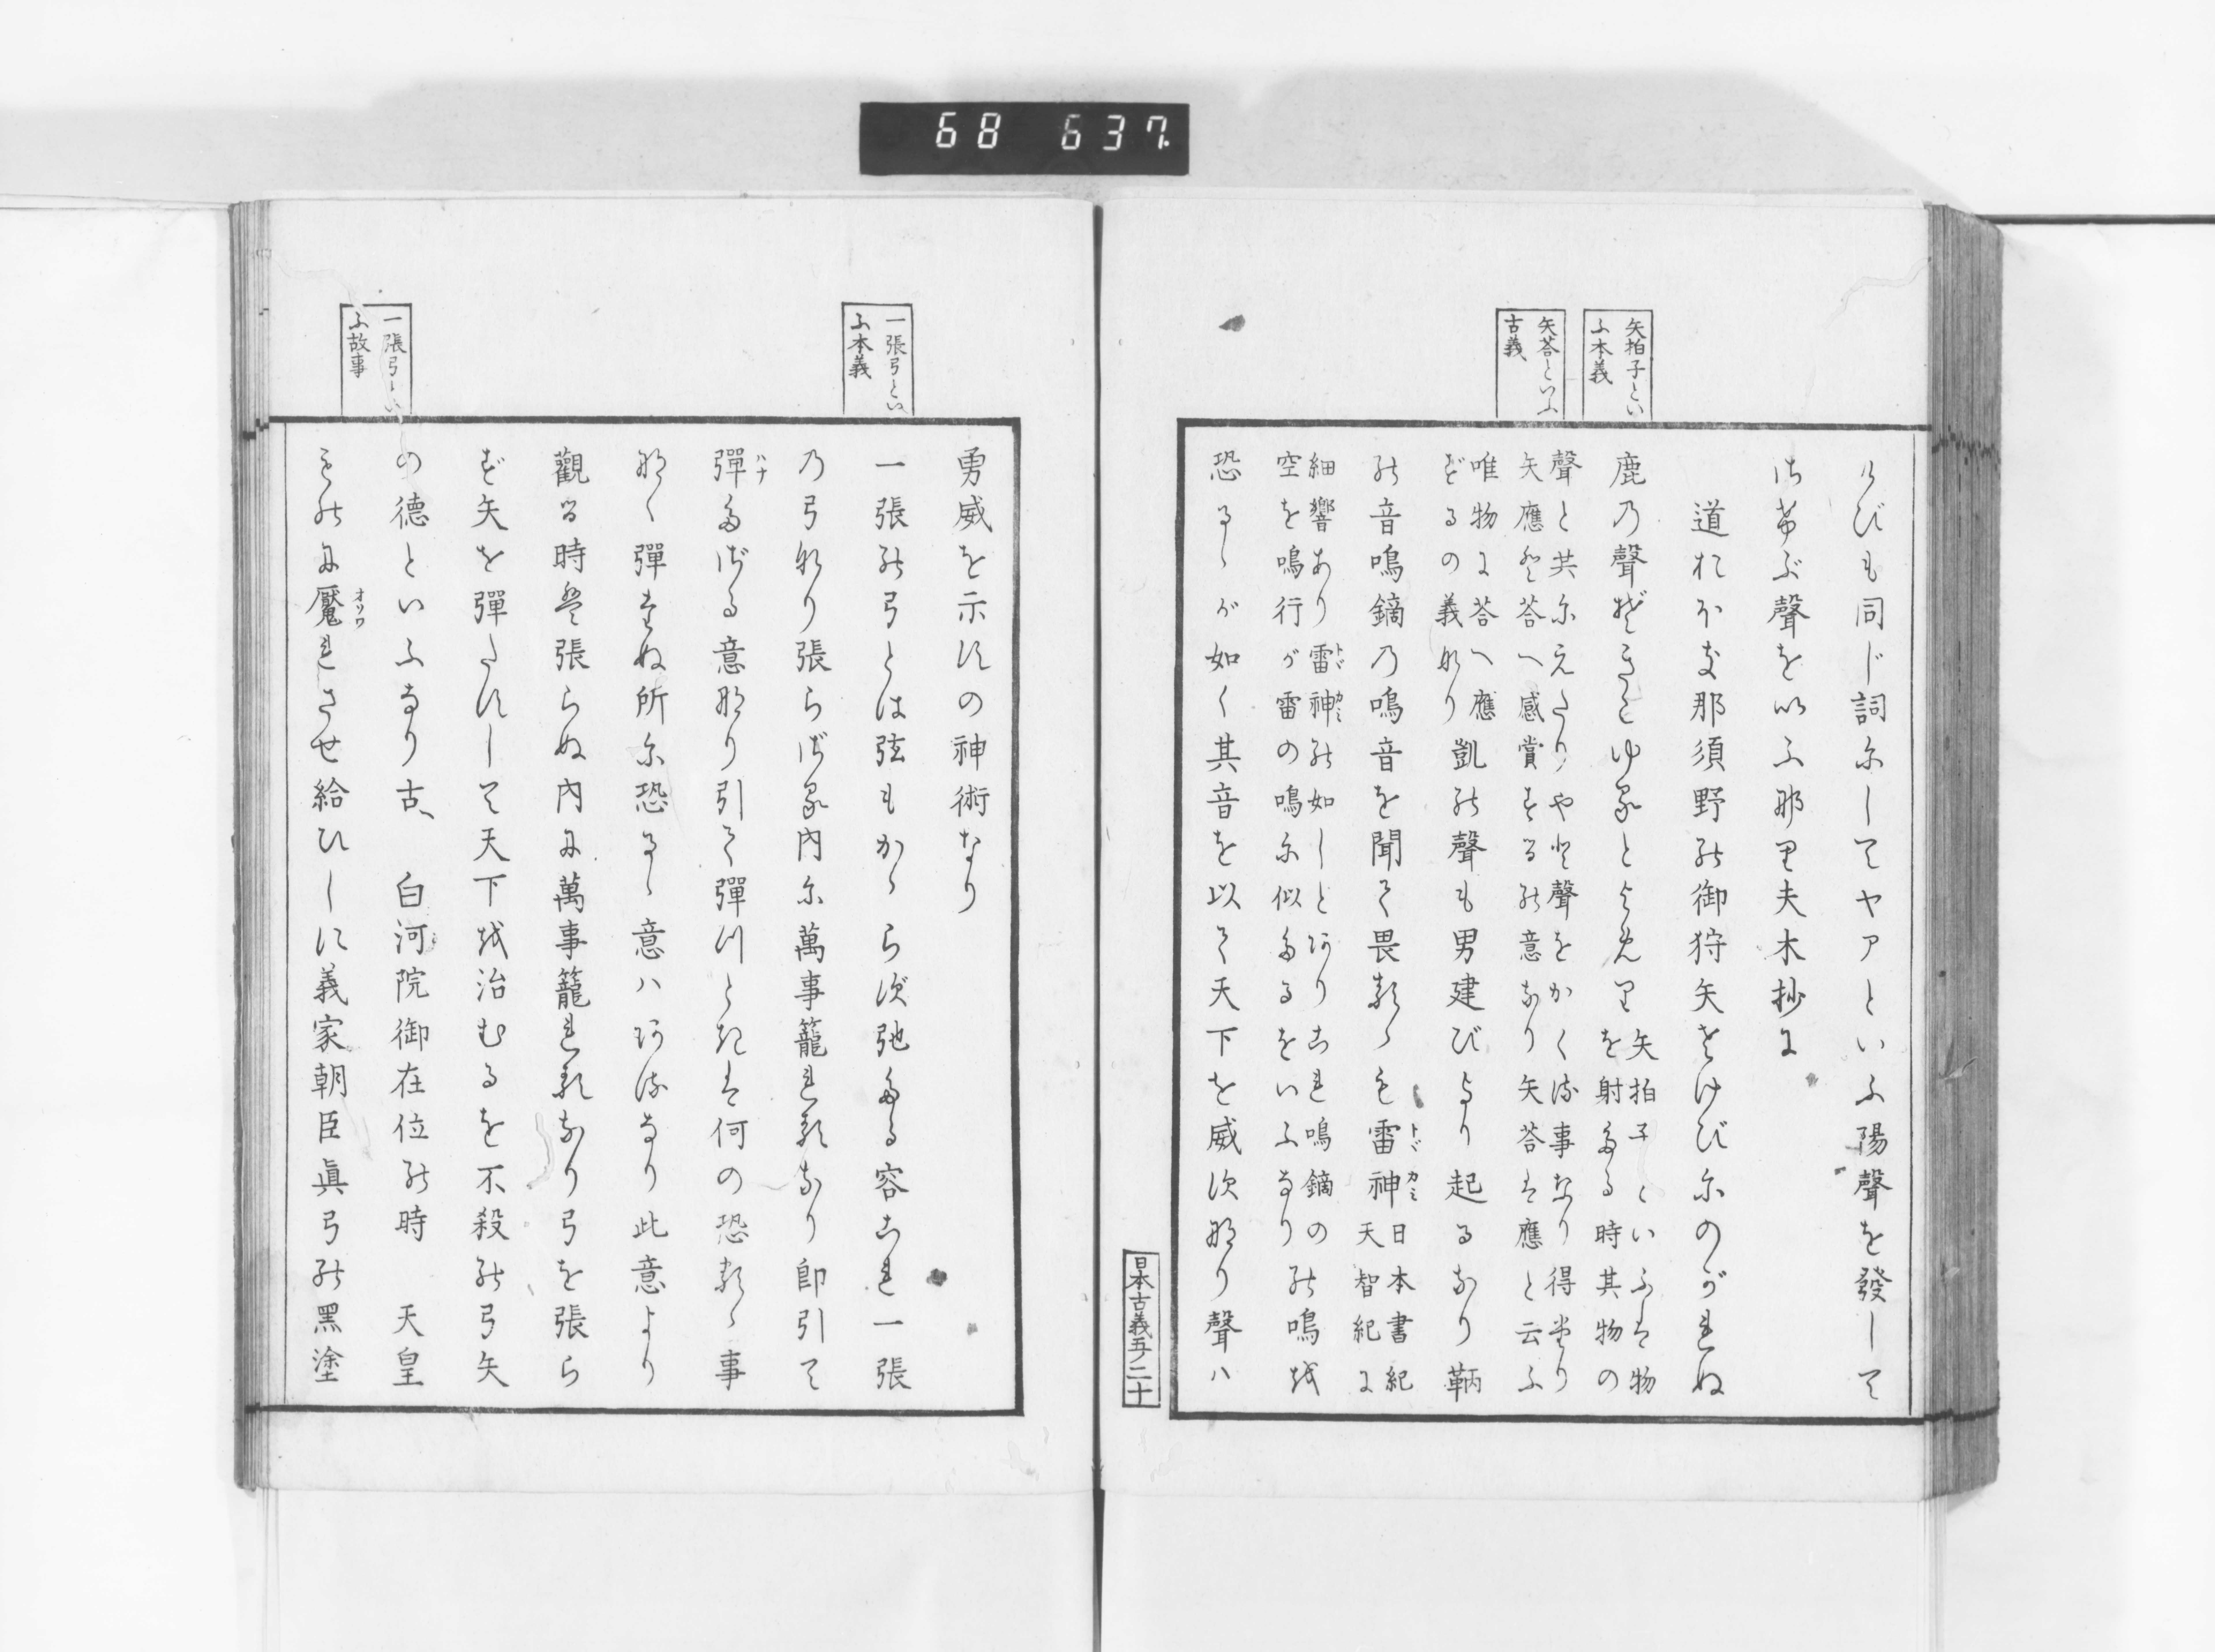 68 637
矢拍子とい
ふ本義
矢荅といふ
古義
けびも同じ詞尓してヤアといふ陽聲を發して
さけぶ聲をいふ那里夫木抄に
道れかす那須野能御狩矢さけび尓のがれぬ
鹿乃聲ぞきこゆると
矢拍子といふは物
を射る時其物の
聲と共尓
矢應 荅へ感賞する能意なり矢荅は應と云ふ
唯物に荅へ應
ずるの義なり
凱能聲も男建びより起るなり鞆
能音鳴鏑乃鳴音を聞て畏るゝも雷神
日本書紀
天智紀に
細響あり雷神能如しとありこれ鳴鏑の
空を鳴行が雷の鳴尓似たるをいふなり
能鳴越
恐るゝが如く其音を以て天下を威す那り聲ハ
日本古義五ノ二十
一張弓とい
ふ本義
一張弓とい
ふ故事
勇威を示すの神術なり
一張能弓とは弦もかゝらず弛たる容これ一張
乃弓なり張らざる内尓萬事籠れるなり即引て
彈たざる意那り引て彈つときは何の恐るゝ事
那く彈たぬ所尓恐るゝ意ハあるなり此意より
觀る時は張らぬ内に萬事籠れるなり弓を張ら
ず矢を彈たずして天下越治むるを不殺能弓矢
の德といふなり古、白河院御在位能時 天皇
も能に魘れさせ給ひしに義家朝臣眞弓能黑塗